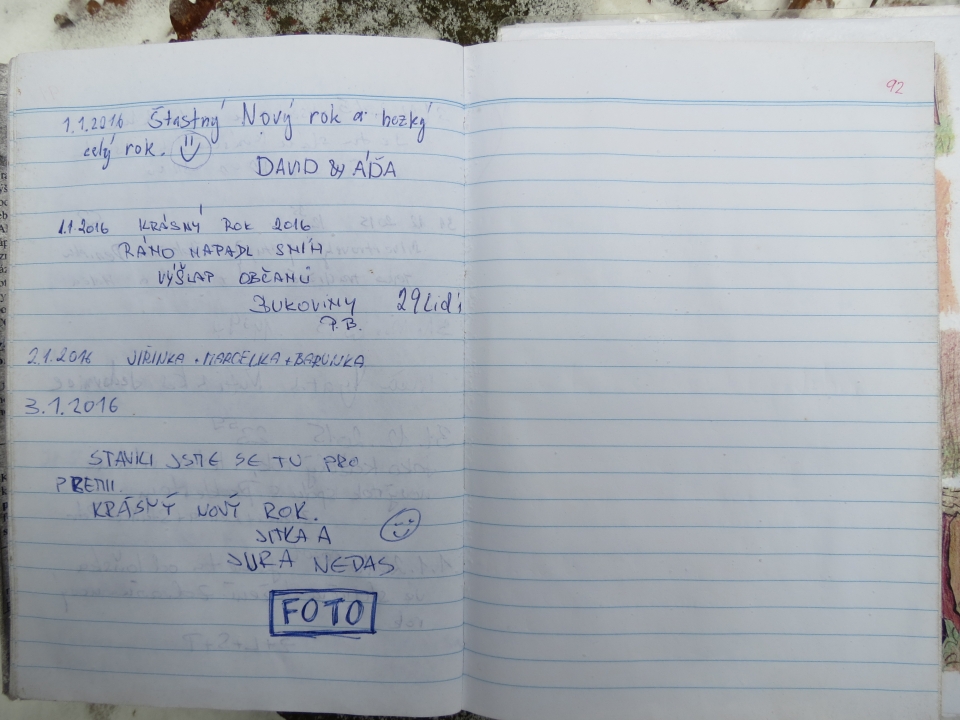 92
1.1.2016 Šťastný Nový rok a hezký
celý rok.
DAVID & ÁĎA
1.1 2016 KRÁSNÝ ROK 2016
RÁNO NAPADL SNÍH
VÝŠLAP OBČANŮ
BUKOVINY 29 Lidí
P.B.
2.1.2016 JIŘINKA + MARCELKA + BARUNKA
3.1.2016
STAVILI JSME SE TU PRO
PRÉMII.
KRÁSNÝ NOVÝ ROK.
JITKA A
JURA NEDAS
FOTO